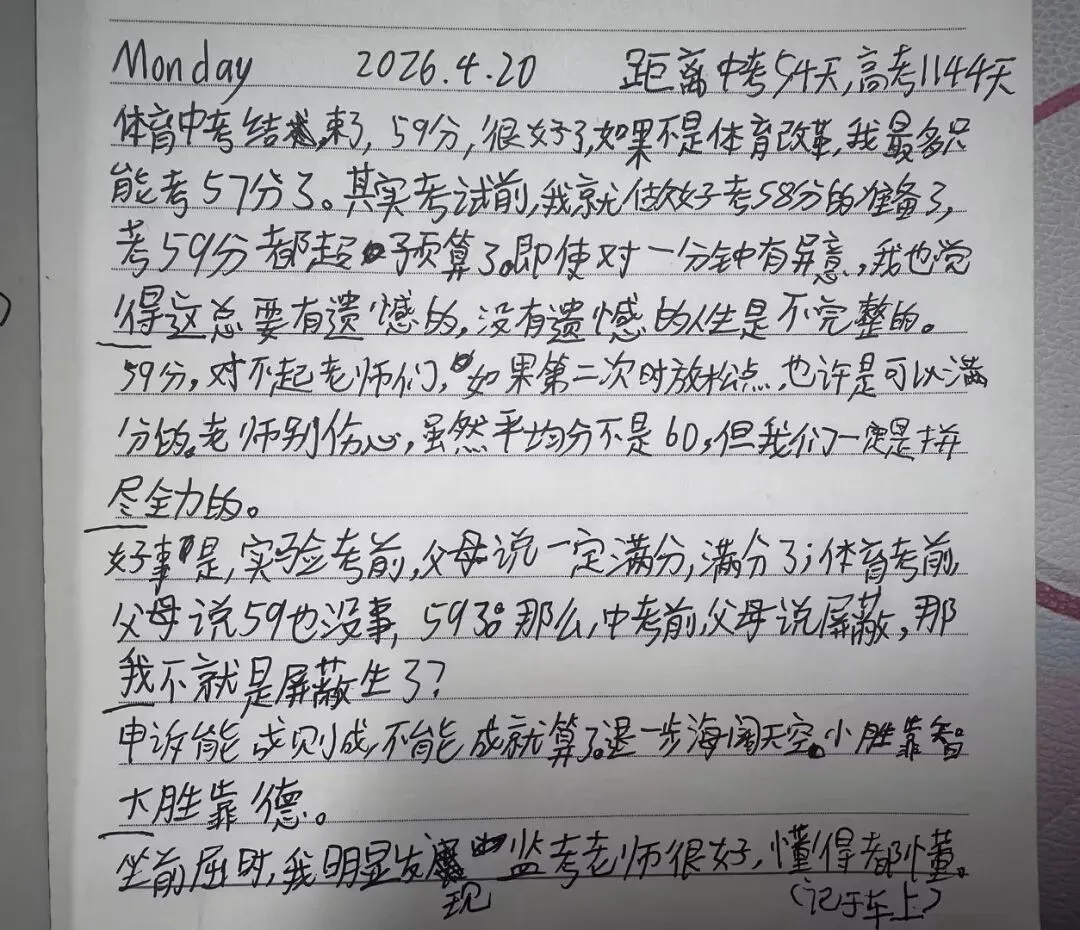 Monday 2026.4.20 距离中考54天,高考1144天
体育中考结束了,59分,很好了,如果不是体育改革,我最多只
能考57分了。其实考试前,我就做好考58分的准备了,
考59分都超预算了。即使对一分钟有屏意,我也觉
得这总要有遗憾的,没有遗憾的人生是不完整的。
59分,对不起老师们,如果第二次时放松点,也许是可以满
分的。老师别伤心,虽然平均分不是60,但我们一定是拼
尽全力的。
好事是,实验考前,父母说一定满分,满分了;体育考前,
父母说59也没事,59了。那么,中考前,父母说屏蔽,那
我不就是屏蔽生了?
申诉能成则成,不能成就算了。退一步海阔天空。小胜靠智
大胜靠德。
坐前屈时,我明显发现监考老师很好,懂得都懂。
(记于车上)